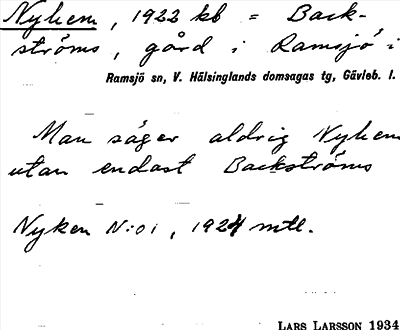 Nyhem, 1922 kb = Back-
ströms, gård i Ramsjö i
Ramsjö sn, V. Hälsinglands domsagas tg, Gävleb. l.
Man säger aldrig Nyhem
utan endast Backströms
Nyhem N:o 1, 1924 mtl.
LARS LARSSON 1934